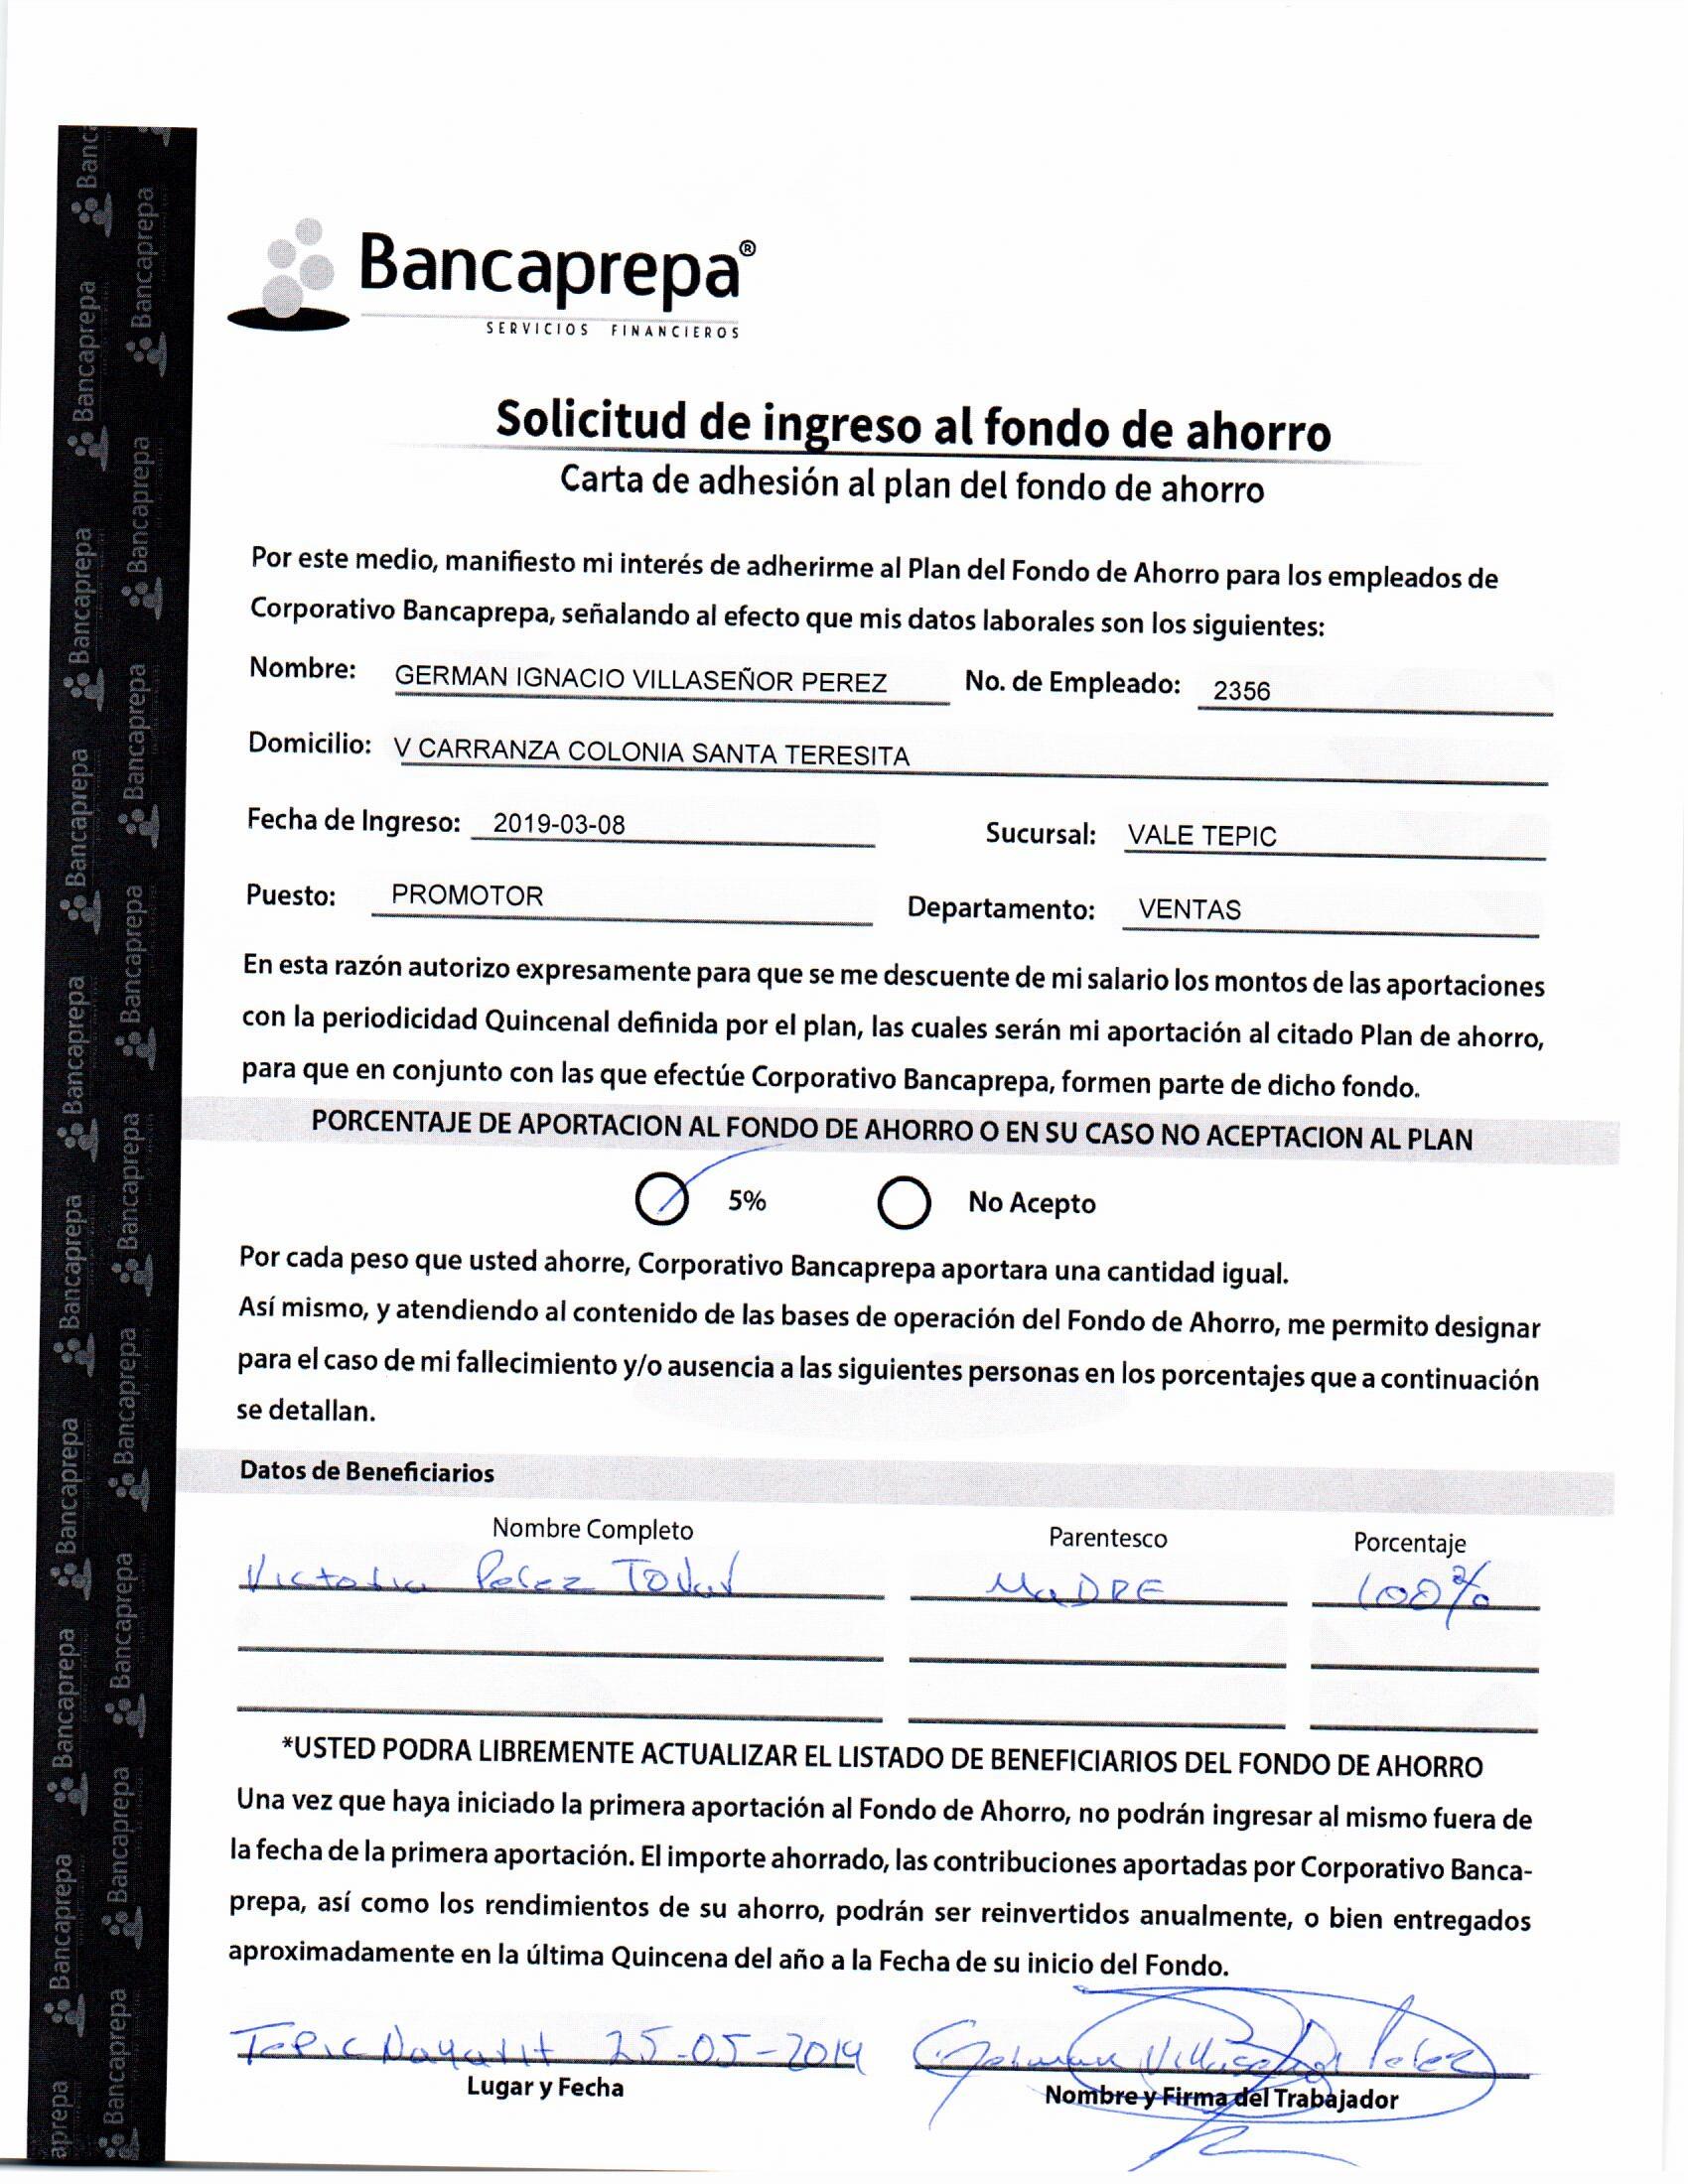 Bancaprepa®
SERVICIOS FINANCIEROS
Solicitud de ingreso al fondo de ahorro
Carta de adhesión al plan del fondo de ahorro
Por este medio, manifiesto mi interés de adherirme al Plan del Fondo de Ahorro para los empleados de
Corporativo Bancaprepa, señalando al efecto que mis datos laborales son los siguientes:
Nombre: GERMAN IGNACIO VILLASEÑOR PEREZ No. de Empleado: 2356
Domicilio: V CARRANZA COLONIA SANTA TERESITA
Fecha de Ingreso: 2019-03-08 Sucursal: VALE TEPIC
Puesto: PROMOTOR Departamento: VENTAS
En esta razón autorizo expresamente para que se me descuente de mi salario los montos de las aportaciones
con la periodicidad Quincenal definida por el plan, las cuales serán mi aportación al citado Plan de ahorro,
para que en conjunto con las que efectúe Corporativo Bancaprepa, formen parte de dicho fondo.
PORCENTAJE DE APORTACION AL FONDO DE AHORRO O EN SU CASO NO ACEPTACION AL PLAN
5% No Acepto
Por cada peso que usted ahorre, Corporativo Bancaprepa aportara una cantidad igual.
Así mismo, y atendiendo al contenido de las bases de operación del Fondo de Ahorro, me permito designar
para el caso de mi fallecimiento y/o ausencia a las siguientes personas en los porcentajes que a continuación
se detallan.
Datos de Beneficiarios
Nombre Completo Parentesco Porcentaje
Victoria Perez Tovar MaDRE 100%
*USTED PODRA LIBREMENTE ACTUALIZAR EL LISTADO DE BENEFICIARIOS DEL FONDO DE AHORRO
Una vez que haya iniciado la primera aportación al Fondo de Ahorro, no podrán ingresar al mismo fuera de
la fecha de la primera aportación. El importe ahorrado, las contribuciones aportadas por Corporativo Banca-
prepa, así como los rendimientos de su ahorro, podrán ser reinvertidos anualmente, o bien entregados
aproximadamente en la última Quincena del año a la Fecha de su inicio del Fondo.
Tepic Nayarit 25-05-2019 German Villaseñor Perez
Lugar y Fecha Nombre y Firma del Trabajador